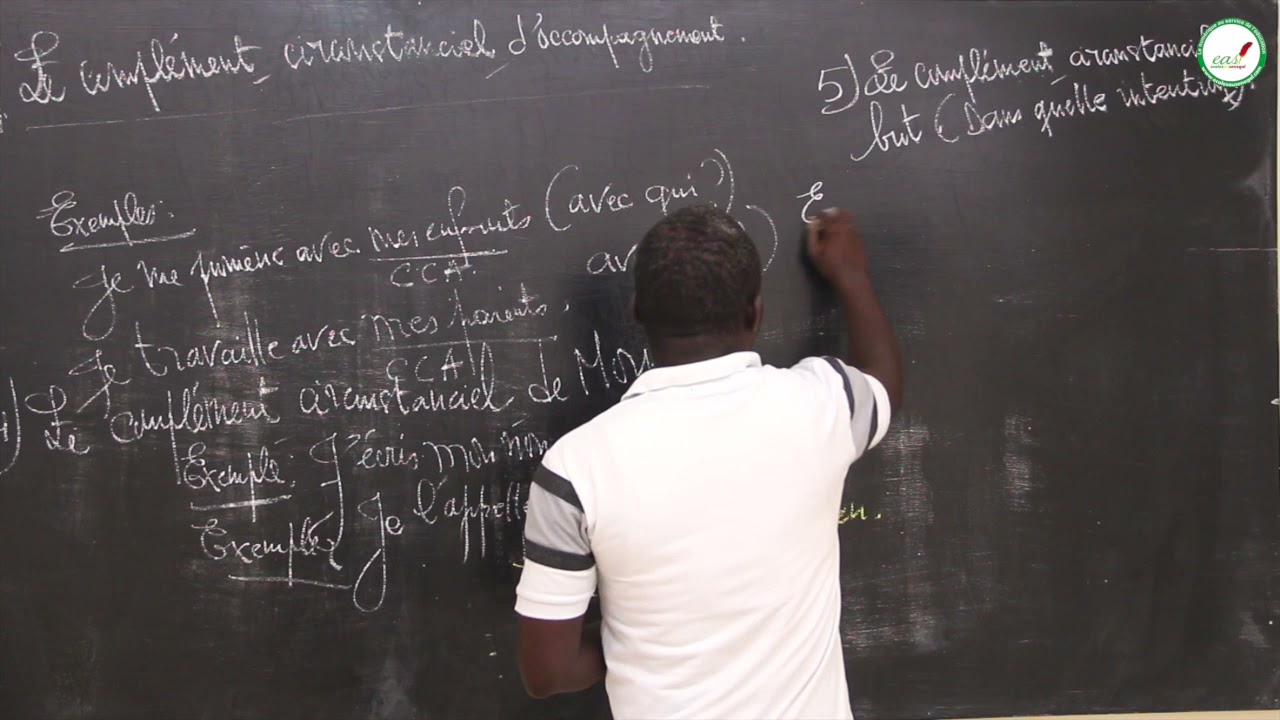 Le complément circonstanciel d'accompagnement.
Exemples:
Je me promène avec mes enfants (avec qui?)
CCA.
Je travaille avec mes parents.
CCA
4) Le complément circonstanciel de
Exemple: J'écris mon
Exemple Je l'appelle
5) Le complément circonstanciel
but (Dans quelle intention
E
eas!